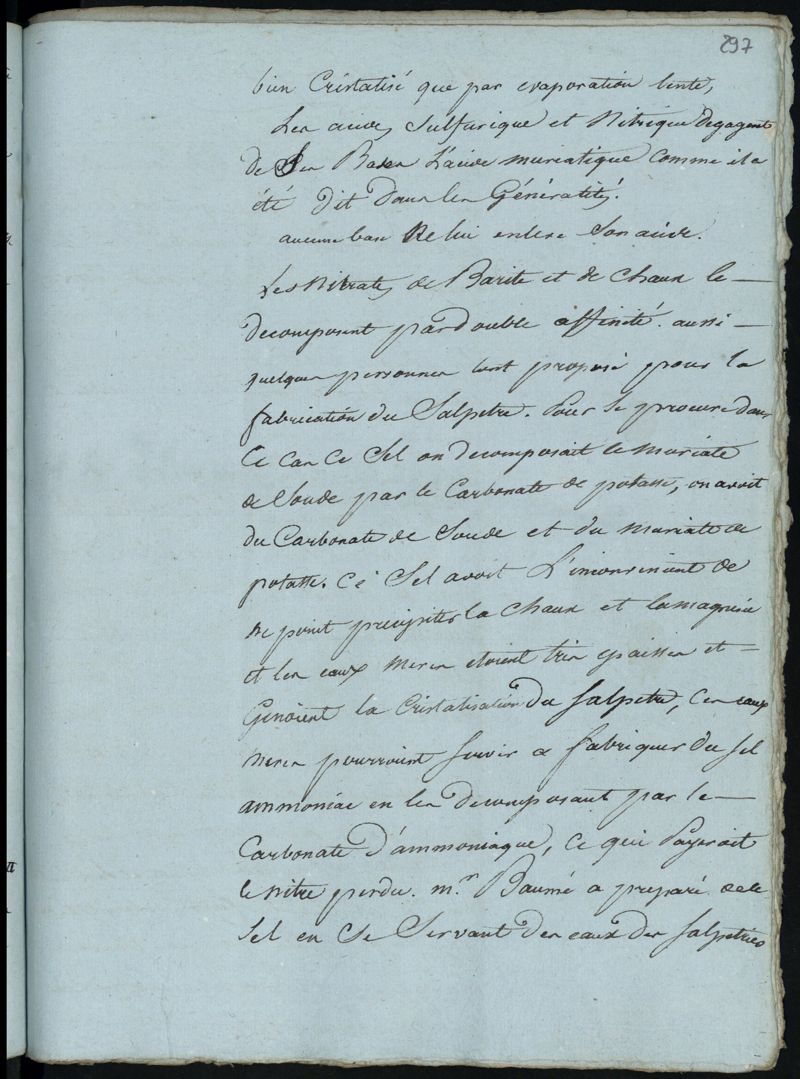 297
bien Cristalisé que par evaporation lente,
Les acides Sulfurique et Nitrique Degagent
de Ses Bases L'acide muriatique comme il a
été Dit Dans les Généralités.
aucune base Ne lui enleve Son acide.
Les Nitrates de Barite et de Chaux le
decomposent par Double affinité. aussi
quelques personnes l'ont proposé pour la
fabrication du Salpetre. Pour se procurer dans
Ce Cas Ce Sel on Decomposait le muriate
de Soude par le Carbonate de potasse, on avoit
du Carbonate de Soude et du muriate de
potasse. Ce Sel avoit L'inconvenient de
ne point precipiter la Chaux et la magnésie
et les eaux meres etoient très epaisses et
Genoient la Cristalisation du Salpetre, Ces eaux
meres pourroient Servir a fabriquer du Sel
ammoniac en les Decomposant par le
Carbonate D'ammoniaque, Ce qui Payeroit
le nitre perdu. mr. Baumé a preparé de ce
Sel en Se Servant Des eaux des Salpetriers